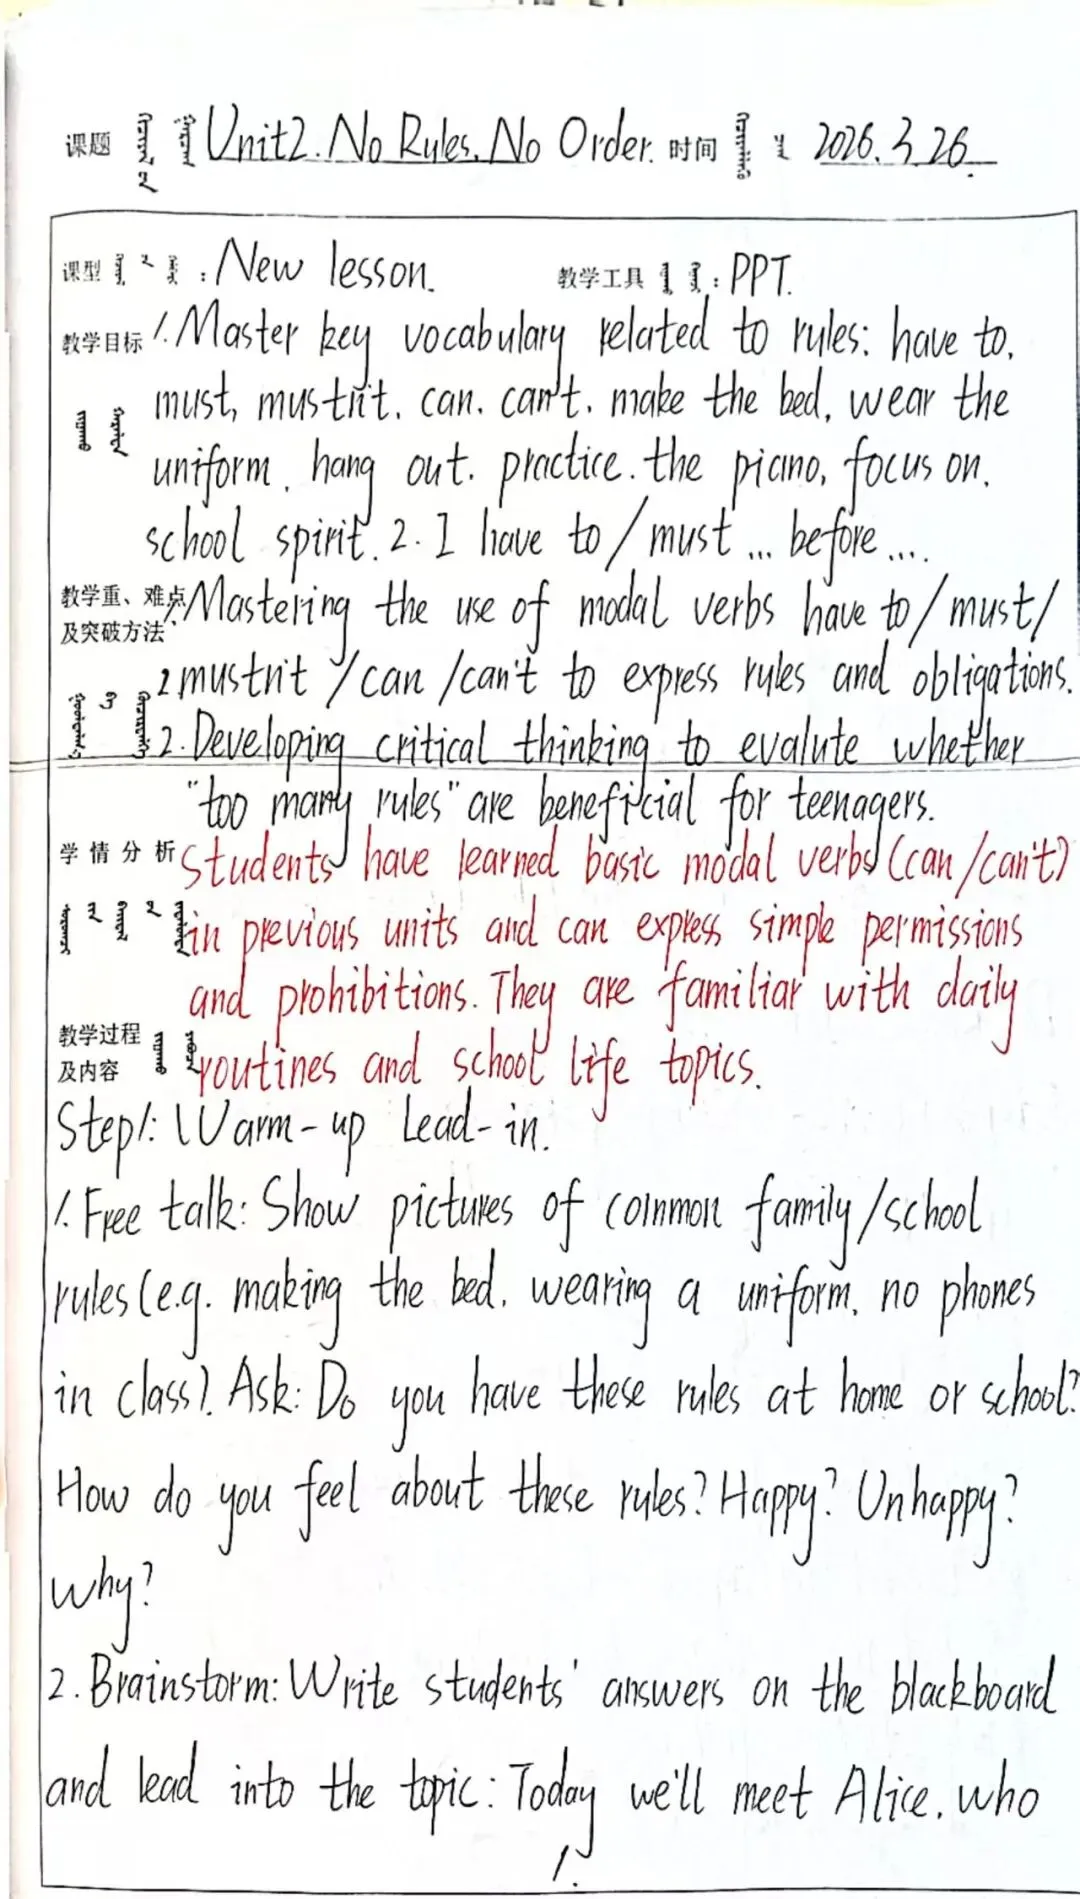 课题 Unit2. No Rules. No Order. 时间 2026.3.26.
课型 : New lesson. 教学工具 : PPT.
教学目标 1. Master key vocabulary related to rules: have to,
must, mustn't. can. can't. make the bed, wear the
uniform. hang out. practice. the piano, focus on.
school spirit. 2. I have to / must ... before ....
教学重、难点 1. Mastering the use of modal verbs have to / must /
及突破方法
2 mustn't / can / can't to express rules and obligations.
2. Developing critical thinking to evalute whether
"too many rules" are beneficial for teenagers.
学情分析 Students have learned basic modal verbs (can / can't)
in previous units and can express simple permissions
and prohibitions. They are familiar with daily
教学过程
及内容 routines and school life topics.
Step1: Warm-up Lead-in.
1. Free talk: Show pictures of common family / school
rules (e.g. making the bed. wearing a uniform. no phones
in class). Ask: Do you have these rules at home or school?
How do you feel about these rules? Happy? Unhappy?
why?
2. Brainstorm: Write students' answers on the blackboard
and lead into the topic: Today we'll meet Alice. who
1.